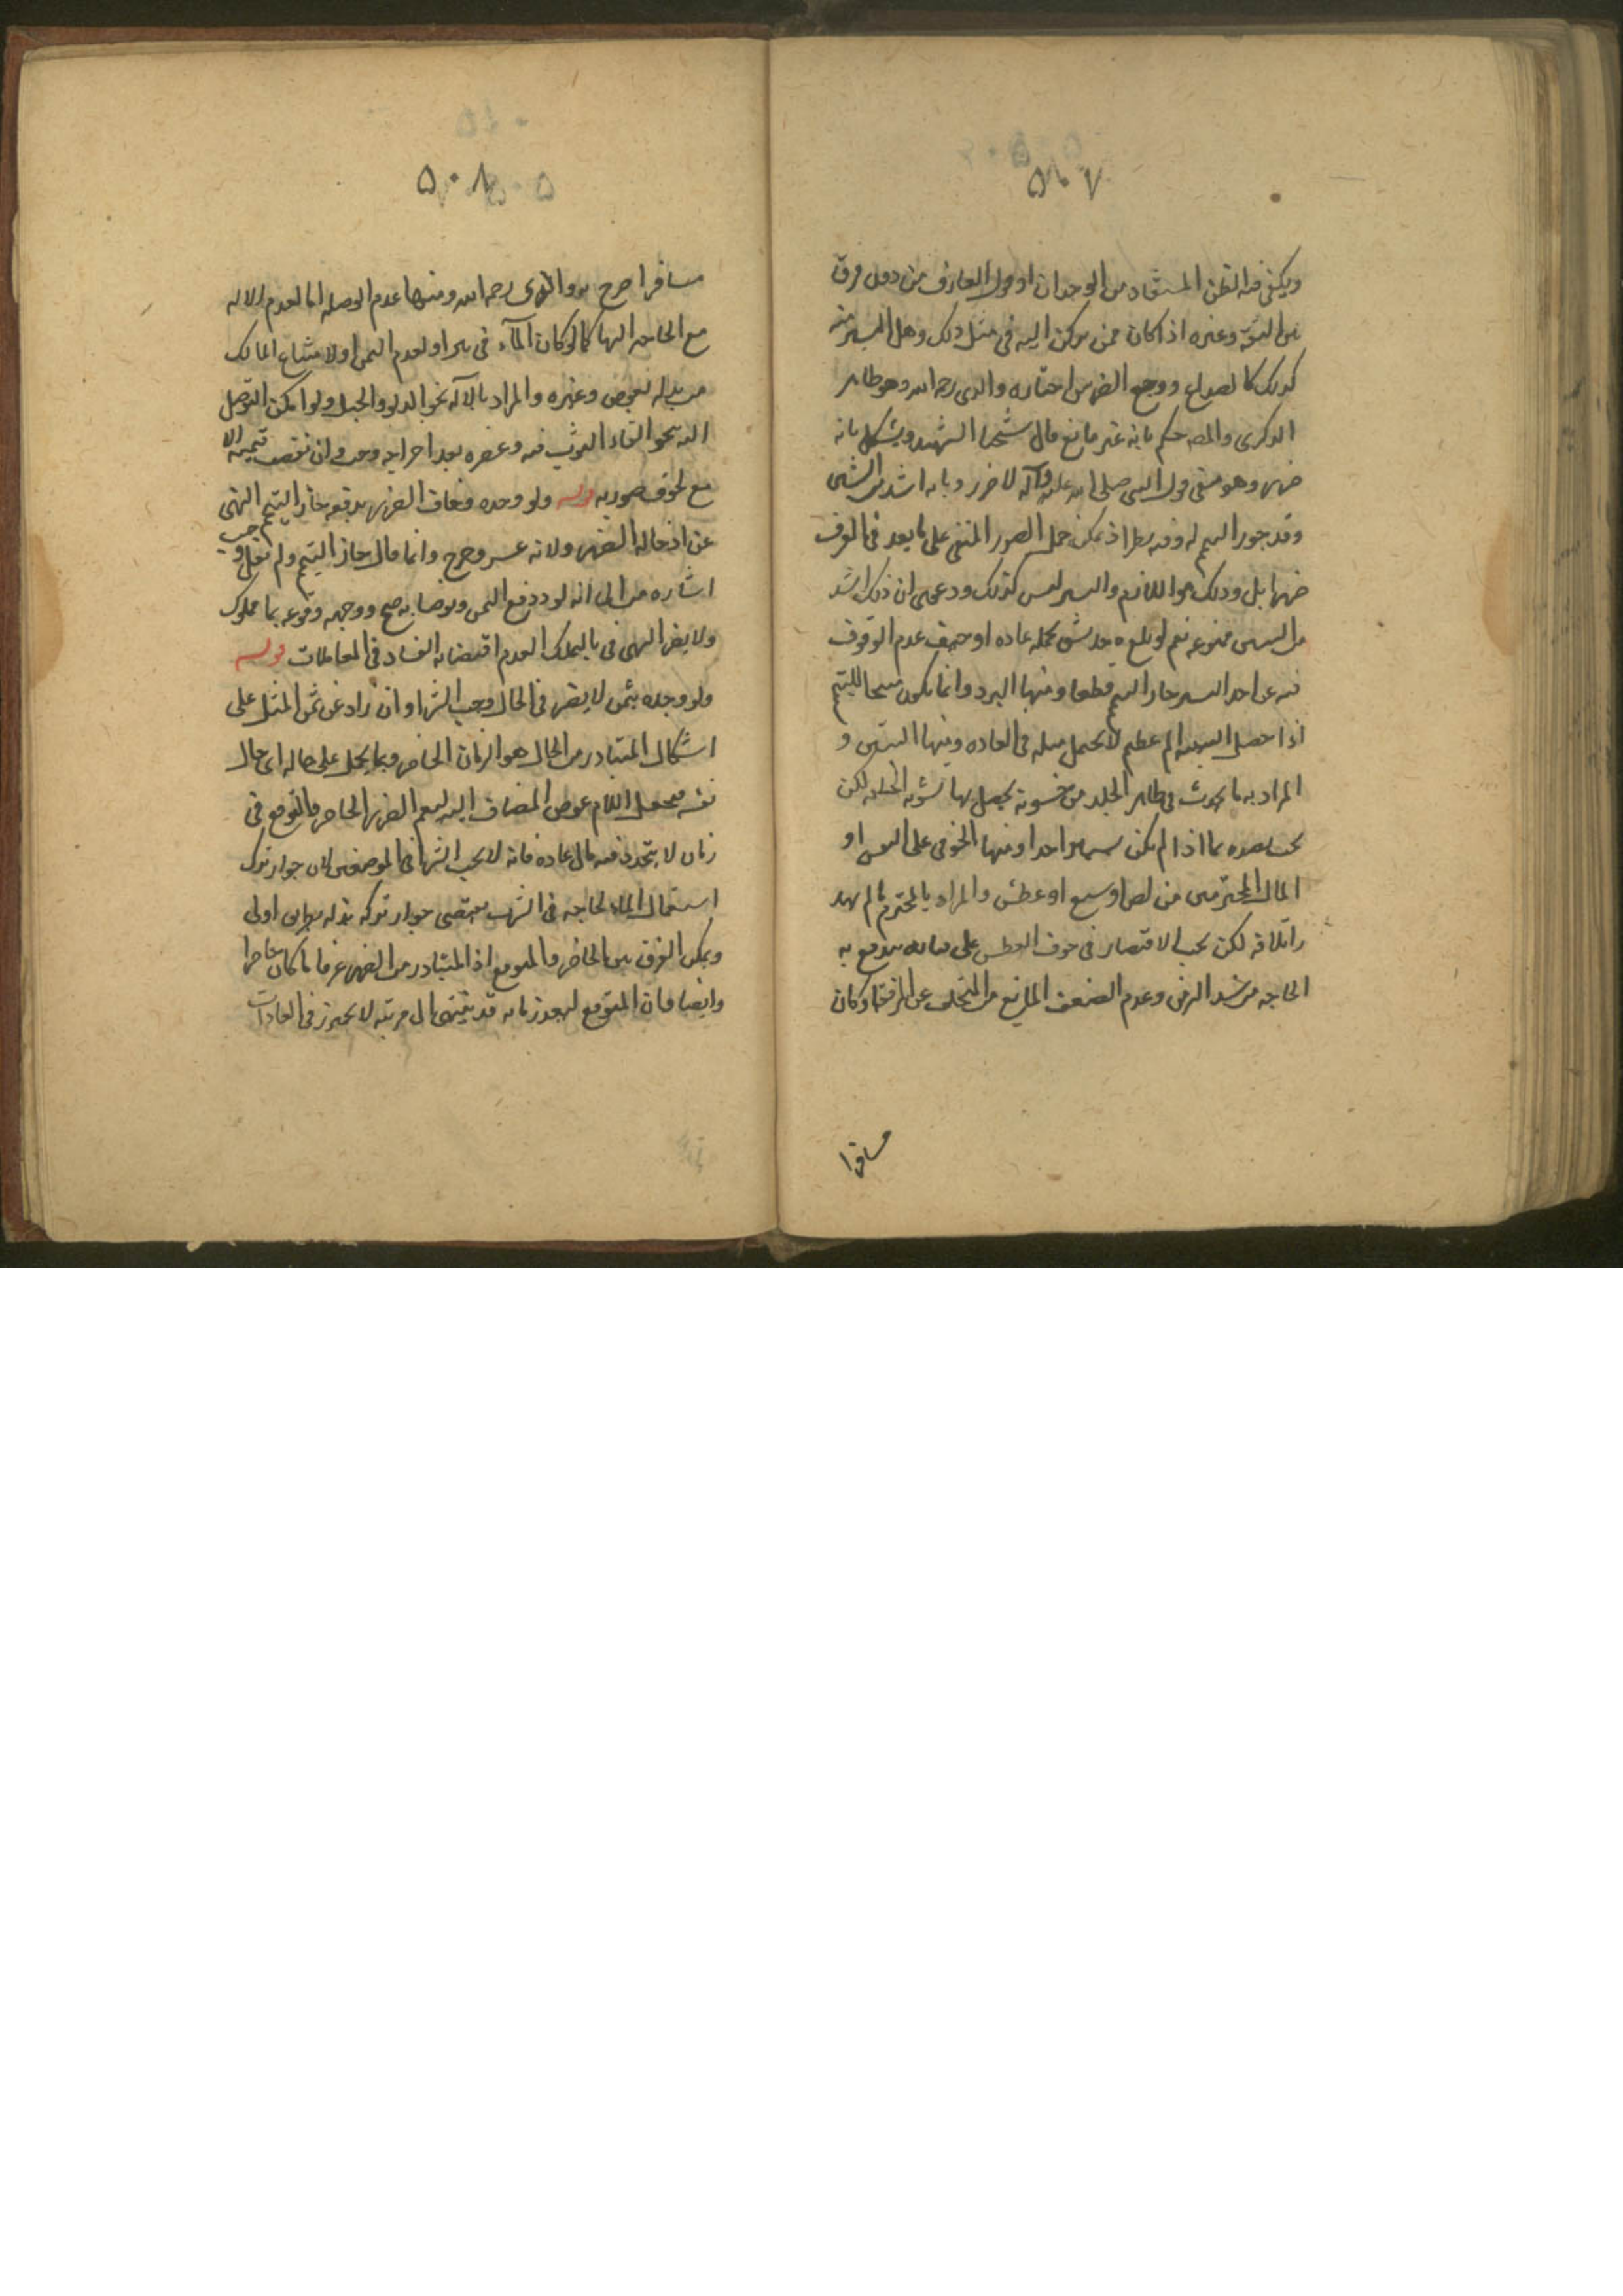 ٥٠٧
ويكفى فيه الظن المستفاد من الوجدان او قول العارف من دون فرق
بين الثقة وغيره اذا كان ممن يركن اليه فى مثل ذلك وهل اليسير منه
كذلك كالصداع ووجع الضرس اختاره والدى رحمه الله وهو ظاهر
الذكرى والمصـ حكم بانه غير مانع قال شيخنا الشهيد ويشكل بانه
ضرر وهو منفى بقول النبى صلى الله عليه وآله لا ضرر وبانه اشد من الشين
وقد جوز التيمم له وفيه نظر اذ يمكن حمل الضرر المنفى على ما يعد فى العرف
ضررا بل وذلك هو اللازم واليسير ليس كذلك ودعوى ان ذلك اشد
من الشين ممنوعه نعم لو بلغ حد يشق تحمله عاده او خيف عدم الوقوف
فيه عن احد اليسير جاز التيمم قطعا ومنها البرد وانما يكون مبيحا للتيمم
اذا حصل البرد الم عظيم لا يحتمل مثله فى العاده ومنها الشين و
المراد به ما يحدث فى ظاهر الجلد من خشونة يحصل بها تشويه الخلقه لكن
يجب تقييده بما اذا لم يكن يسيرا جدا ومنها الخوف على النفس او
المال المحترمين من لص او سبع او عطش والمراد بالمحترم ما لم يهدر
اتلافه لكن يجب الاقتصار فى خوف العطش على ما يندفع به
الحاجه من سد الرمق وعدم الضعف المانع من التخلف عن الرفقة لو كان
مسافرا
٥٠٨
مسافرا صرح به والدى رحمه الله ومنها عدم الوصله اما لعدم الاله
مع الحاجه اليها كما لو كان المآء فى بير او لعدم الثمن او لامتناع المالك
من بذله بعوض وغيره والمراد بالآله نحو الدلو والحبل ولو امكن التوصل
اليه بنحو القاء الثوب فيه وعصره بعد اخراجه وجب وان نقصت قيمته الا
مع لحوق ضرر به قوله ولو وجده وخاف الضرر بدفعه جاز التيمم للنهى
عن ادخاله الضرر ولانه عسر وحرج وانما قال جاز التيمم ولم يقل وجب
اشاره منه الى انه لو دفع الثمن وتوضا به صح ووجهه وقوعه بما مملوك
ولا يضر النهى فى باب التملك لعدم اقتضائه الفساد فى المعاملات قوله
ولو وجده بثمن لا يضر فى الحال وجب الشراء وان زاد عن ثمن المثل على
اشكال المتبادر من الحال هو الزمان الحاضر وربما يحمل على حاله اى حال
نفسه فيجعل اللام عوض المضاف اليه ليعم الضرر الحاضر والمتوقع فى
زمان لا يتجدد فيه مال عاده فانه لا يجب الشراء فى الموضعين لان جواز ترك
استعمال الماء لحاجه فى الشرب يقتضى جواز تركه بذله بطريق اولى
ويمكن الفرق بين الحاضر والمتوقع اذ المتبادر من الضرر عرفا ما كان حاضرا
وايضا فان المتوقع لبعد زمانه قد ينتهى الى مرتبه لا يحترز فى العادات